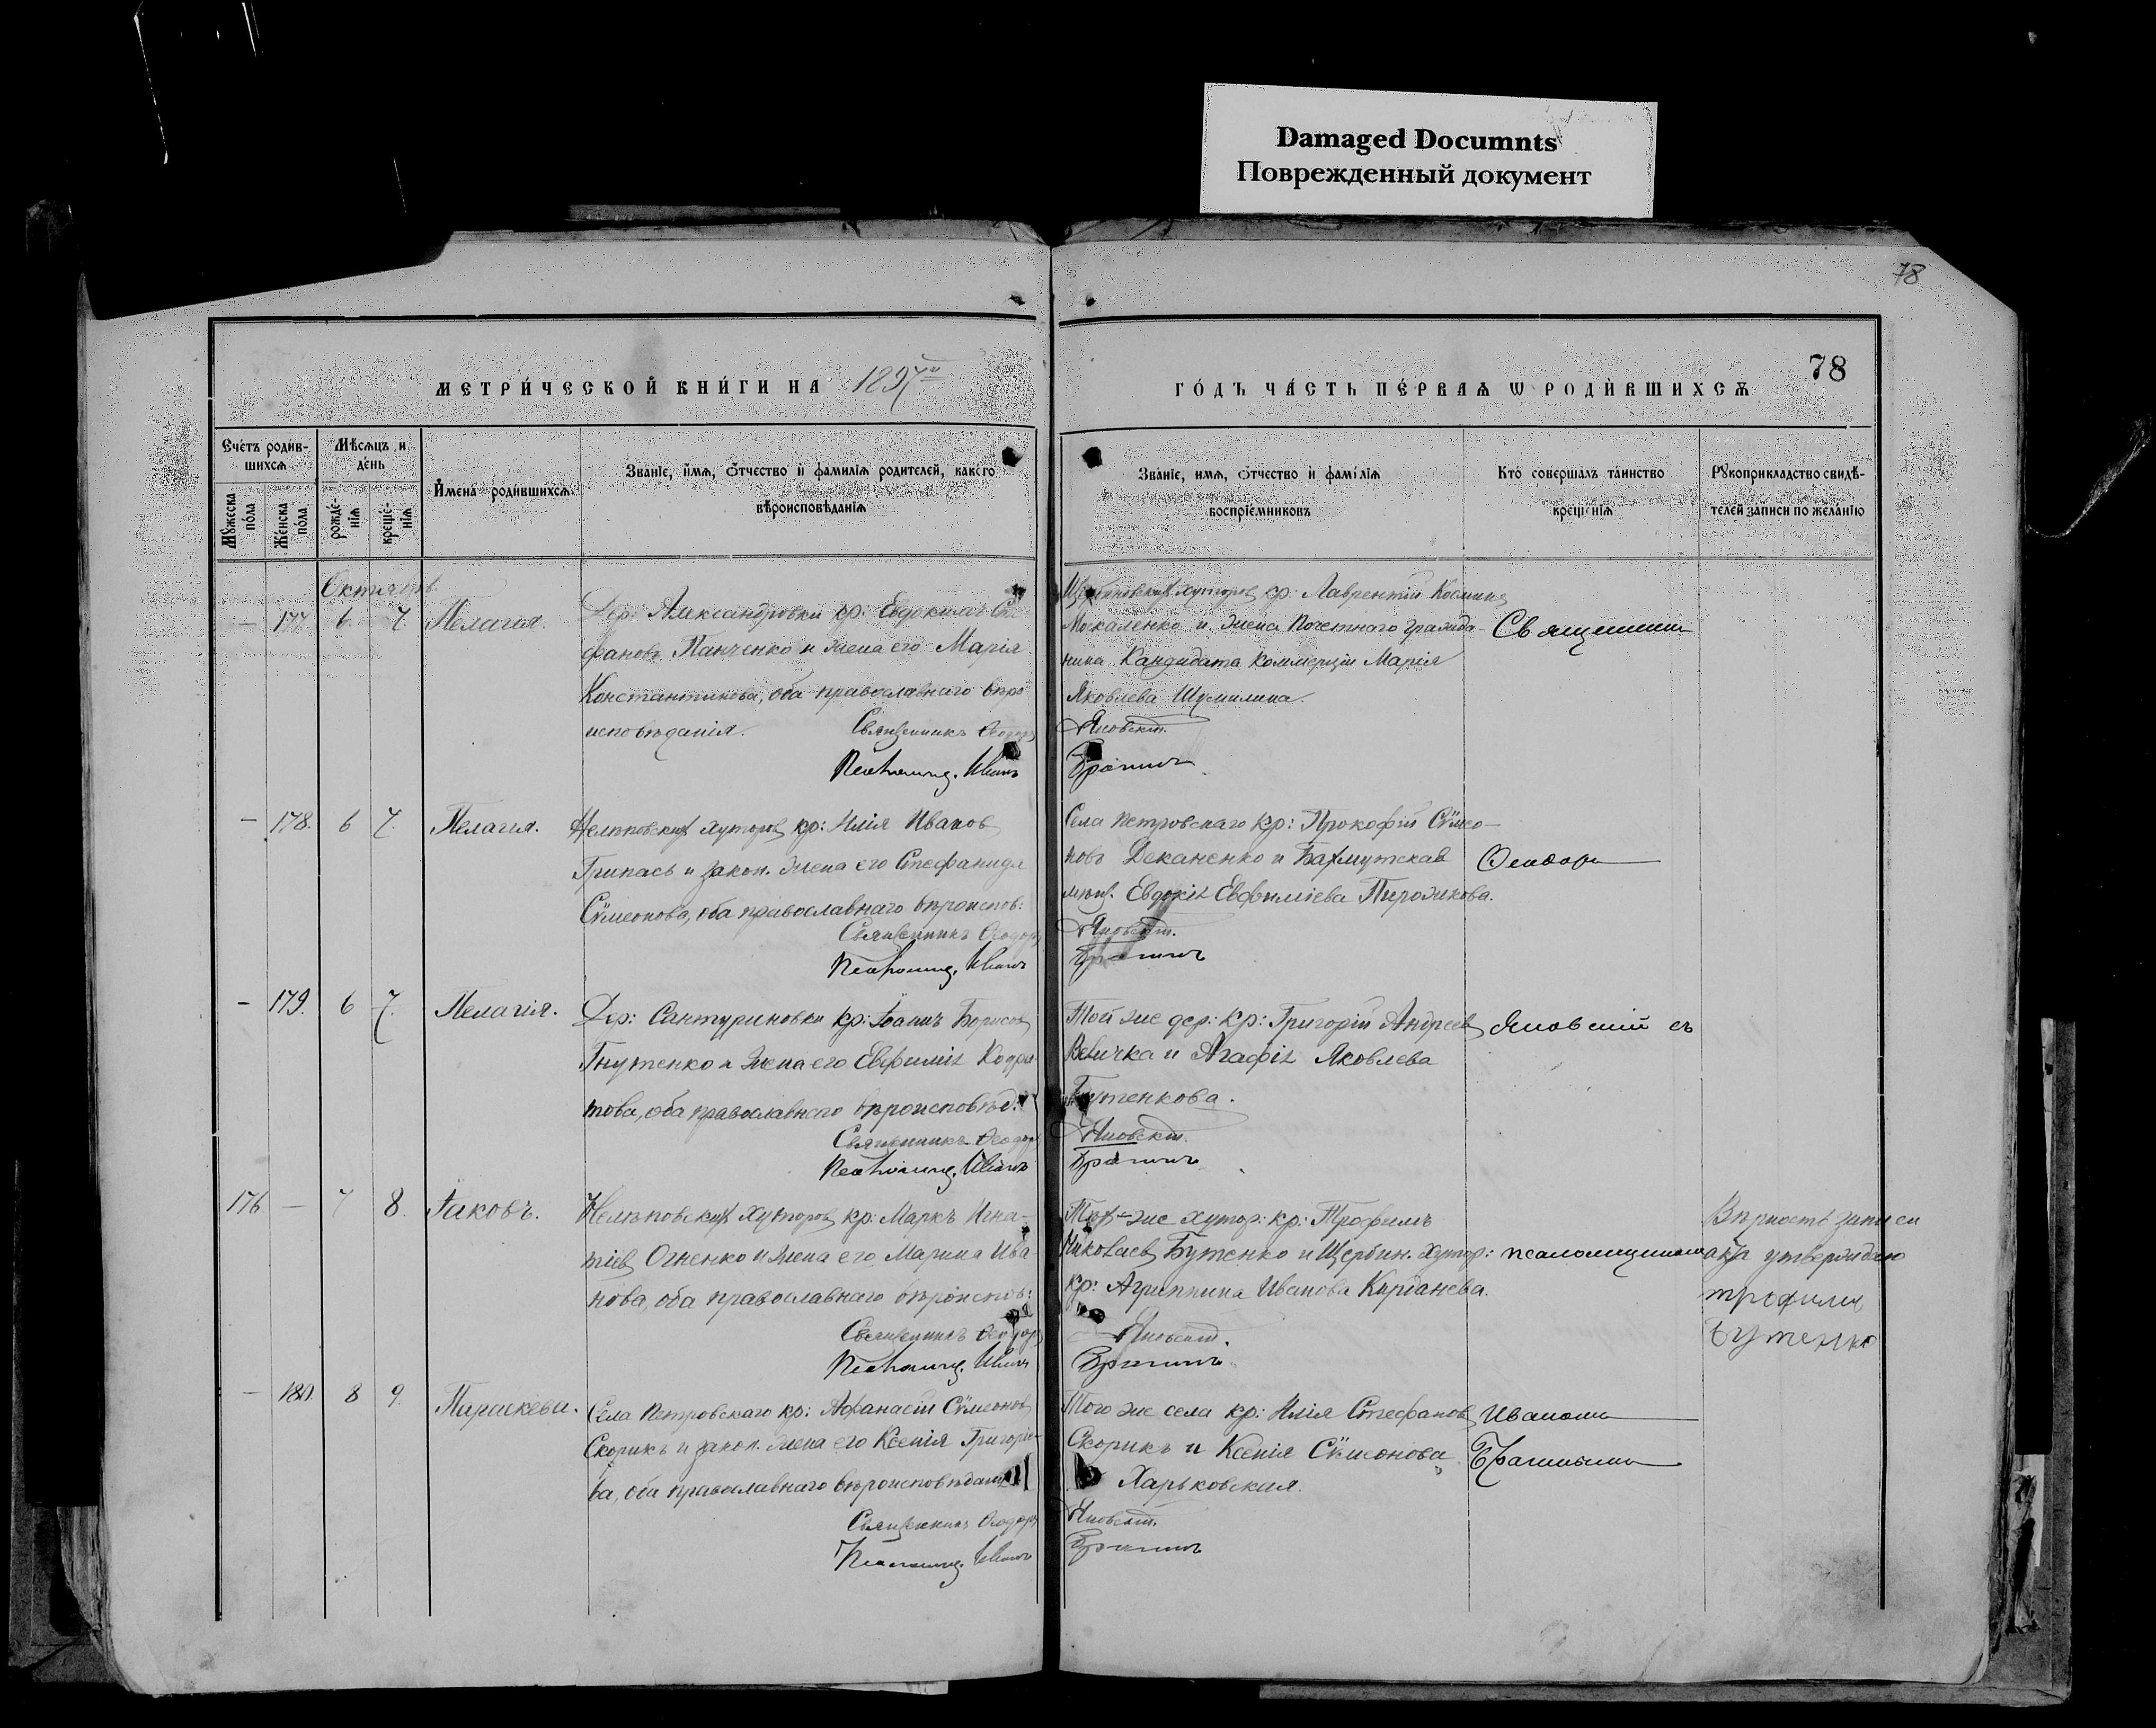 Damaged Documnts
Поврежденный документ
78
78
МЕТРИ́ЧЕСКОЙ КНИ́ГИ НА 1897й
ГО́ДЪ ЧА́СТЬ ПЕ́РВАѦ Ѡ РОДИ́ВШИХСѦ
Сче́тъ роди́в-
шихсѧ
Мꙋ́жеска по́ла
Же́нска по́ла
Мѣ́сѧцъ и
де́нь
рожде́-
нїѧ
креще́-
нїѧ
И҆мена́ роди́вшихсѧ
Зва́нїе, и҆́мѧ, ѻ҆́тчество и҆ фами́лїѧ роди́телей, како́го
вѣроисповѣ́данїѧ
Зва́нїе, имѧ, ѻ҆́тчество и҆ фамі́лїѧ
воспрїе́мниковъ
Кто̀ соверша́лъ та́инство
креще́нїѧ
Рꙋкоприкла́дство свидѣ́-
телей за́писи по жела́нїю
Октябрь
— 177 6 7. Пелагія.
Дер: Александровки кр: Евдокимъ Сте-
фановъ Панченко и жена его Марія
Константинова, оба православнаго вѣро
исповѣданія.
Священникъ Ѳеодоръ
Псаломщ. Иванъ
Щербиновскихъ хуторовъ кр: Лаврентій Космина
Москаленко и жена Почетнаго гражда-
нина Кандидата Коммерціи Марія
Яковлева Шумилина.
Яновскій.
Братинъ
Священникъ
— 178. 6 7. Пелагія.
Нелѣповскихъ хуторовъ кр: Илія Ивановъ
Грипасъ и закон. жена его Стефанида
Сѵмеонова, оба православнаго вѣроиспов:
Священникъ Ѳеодоръ
Псаломщ. Иванъ
Села Петровскаго кр: Прокофій Сѵмео-
новъ Деканенко и Бахмутская
мѣщ. Евдокія Евфиміева Пирожкова.
Яновскій.
Братинъ
Ѳеодоръ
— 179. 6 7. Пелагія.
Дер: Сантуриновки кр: Іоаннъ Борисовъ
Гнутенко и жена его Евфимія Кодра-
това, оба православнаго вѣроисповѣд:
Священникъ Ѳеодоръ
Псаломщ. Иванъ
Той же дер: кр: Григорій Андреевъ
Величка и Агафія Яковлева
Бутенкова.
Яновскій.
Братинъ
Яновскій съ
176 — 7 8. Іаковъ.
Нелѣповскихъ хуторовъ кр: Маркъ Игна-
тіевъ Огненко и жена его Марина Ива-
нова, оба православнаго вѣроиспов:
Священникъ Ѳеодоръ
Псаломщ. Иванъ
Тѣхъ-же хутор: кр: Трофимъ
Николаевъ Бутенко и Щербин. хутор:
кр: Агриппина Иванова Кирданева.
Яновскій.
Братинъ
псаломщикомъ
Вѣрность записи
акта утверждаю
трофимъ
бутенко
— 180. 8 9. Параскева.
Села Петровскаго кр: Афанасій Сѵмеоновъ
Скорикъ и закон. жена его Ксенія Григорье-
ва, оба православнаго вѣроисповѣданія
Священникъ Ѳеодоръ
Псаломщ. Иванъ
Того же села кр: Илія Стефановъ
Скорикъ и Ксенія Сѵмеонова
Харьковская.
Яновскій.
Братинъ
Иваномъ
Братинымъ